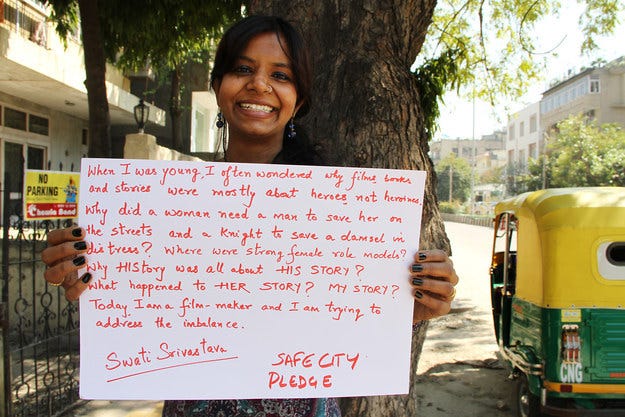 When I was young, I often wondered why films, books
and stories were mostly about heroes not heroines.
Why did a woman need a man to save her on
the streets and a knight to save a damsel in
distress? Where were strong female role models?
Why HIStory was all about HIS STORY?
What happened to HER STORY? MY STORY?
Today, I am a film-maker and I am trying to
address the imbalance.
Swati Srivastava
SAFE CITY
PLEDGE
NO
PARKING
CNG